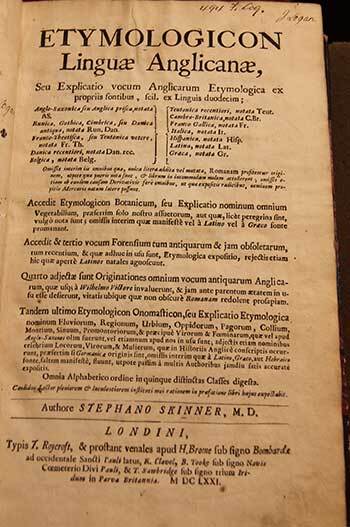 J Logan
ETYMOLOGICON
Linguæ Anglicanæ,
Seu Explicatio vocum Anglicarum Etymologica ex
propriis fontibus, scil. ex Linguis duodecim;
Anglo-Saxonica seu Anglica prisca, notata
AS.
Runica, Gothica, Cimbrica, seu Danica
antiqua, notata Run. Dan.
Franco-Theotisca, seu Teutonica vetere,
notata Fr. Th.
Danica recentiori, notata Dan. rec.
Belgica, notata Belg.
Teutonica recentiori, notata Teut.
Cambro-Britanica, notata C.Br.
Franco Gallica, notata Fr.
Italica, notata It.
Hispanica, notata Hisp.
Latina, notata Lat.
Græca, notata Gr.
Accedit Etymologicon Botanicum, seu Explicatio nominum omnium
Vegetabilium, præsertim solo nostro assuetorum, aut quæ, licet peregrina sint,
vulgò nota sunt; omissis interim quæ manifestè vel à Latino vel à Græco fonte
promanant.
Accedit & tertio vocum Forensium tum antiquarum & jam obsoletarum,
tum recentium, & quæ adhuc in usu sunt, Etymologica expositio, rejectis etiam
hic quæ apertè Latinos natales agnoscunt.
Quarto adjectæ sunt Originationes omnium vocum antiquarum Anglica-
rum, quæ usq; à Wilhelmo Victore invaluerunt, & jam ante parentum ætatem in u-
su esse desierunt, vitatis ubique quæ non obscurè Romanam redolent prosapiam.
Tandem ultimo Etymologicon Onomasticon, seu Explicatio Etymologica
nominum Fluviorum, Regionum, Urbium, Oppidorum, Pagorum, Collium,
Montium, Sinuum, Promontoriorum, & præcipuè Virorum & Fœminarum, quæ vel apud
Anglo-Saxones olim fuerunt, vel etiamnum apud nos in usu sunt, adjectis etiam nominibus
celebriorum Locorum, Virorum, & Mulierum, quæ in Historiis Anglicè conscriptis occur-
runt, præsertim si Germanicæ originis sint, omissis interim quæ à Latino, Græco, aut Hebraico
fonte, saltem manifestè, fluunt, utpote passim à multis Authoribus jamdiu satis accuratè
expositis.
Omnia Alphabetico ordine in quinque distinctas Classes digesta.
Authore STEPHANO SKINNER, M. D.
LONDINI,
Typis T. Roycroft, & prostant venales apud H. Brome sub signo Bombardæ
ad occidentale Sancti Pauli latus, R. Clavel, B. Tooke sub signo Navis
Cœmeterio Divi Pauli, & T. Sawbridge sub signo trium Iri-
dum in Parva Britannia. M DC LXXI.